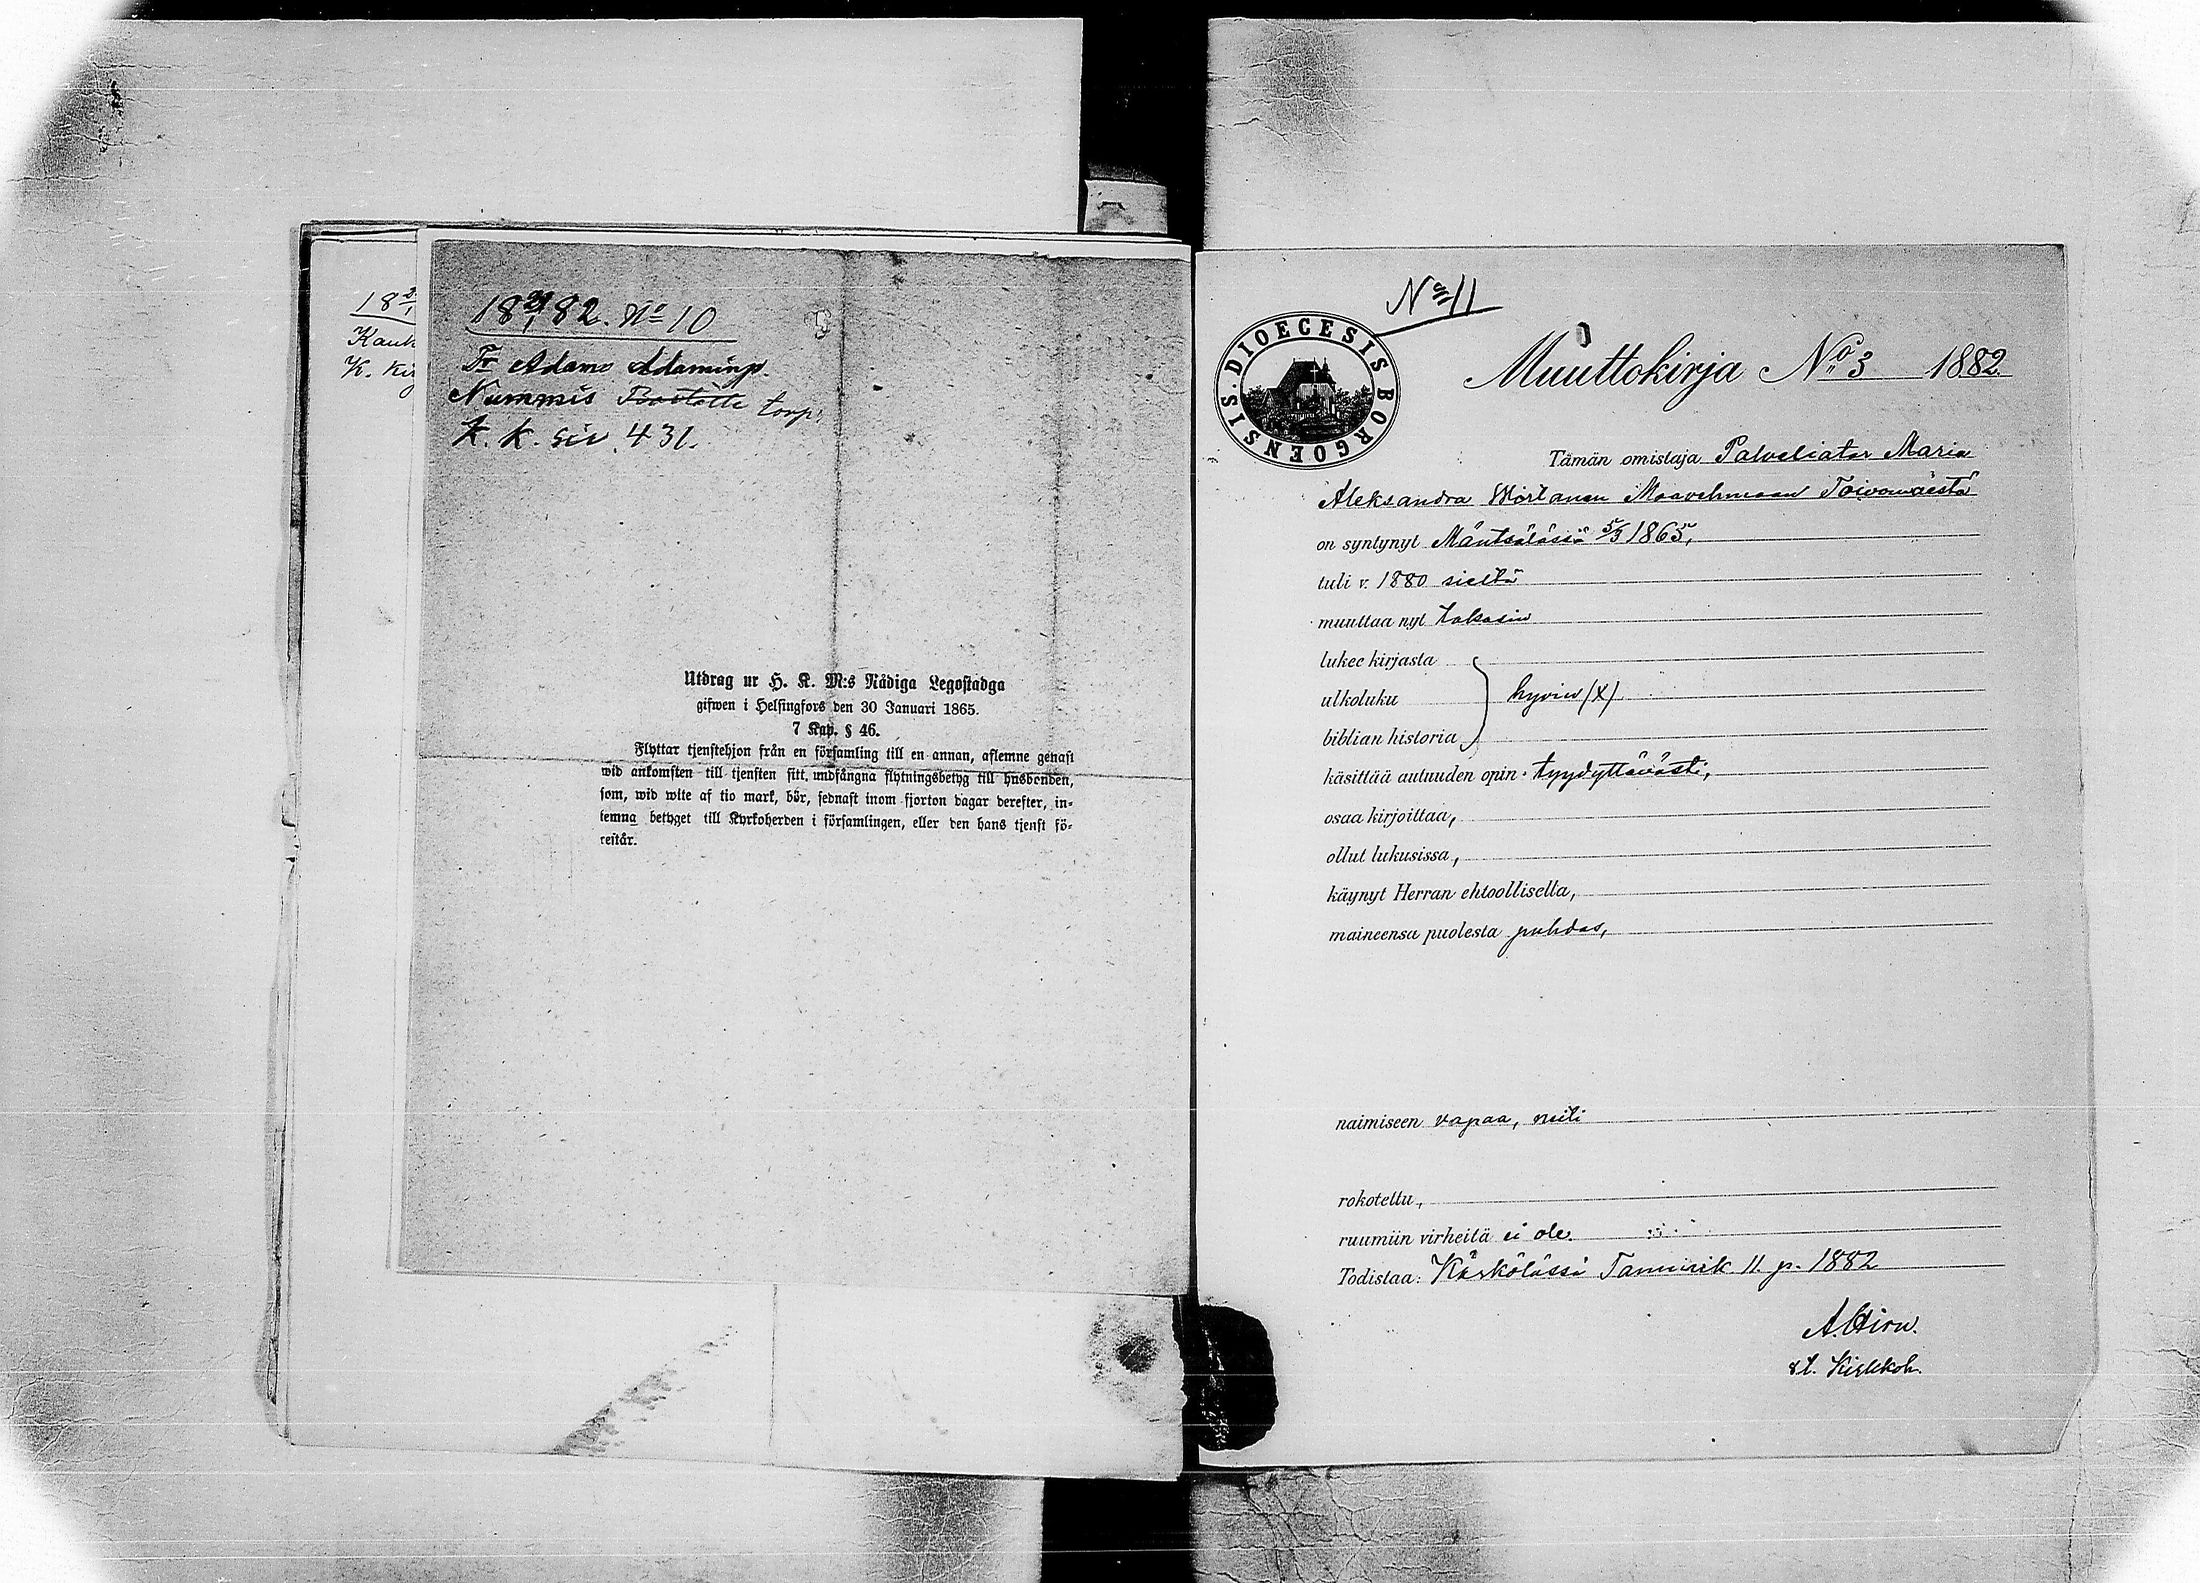 18
Kauk
K. kir
18 21/1 82. No 10
Fr Adamo Adaminp.
Nummis torp.
K. K. siv. 431.
Utdrag ur H. K. M:s Nådiga Legostadga
gifwen i Helsingfors den 30 Januari 1865.
7 Kap. § 46.
Flyttar tjenstehjon från en församling till en annan, aflemne genast
wid ankomsten till tjensten sitt undfångna flytningsbetyg till husbonden,
som, wid wite af tio mark, bör, sednast inom fjorton dagar derefter, in-
lemna betyget till Kyrkoherden i församlingen, eller den hans tjenst fö-
restår.
No 11
DIOECESIS BORGOENSIS.
Muuttokirja No 3 1882.
Tämän omistaja Palveliatar Maria
Aleksandra Toivomäestä
on syntynyt Mäntsälässä 5/3 1865,
tuli v. 1880 sieltä
muuttaa nyt takasin
lukee kirjasta
ulkoluku hyvin (x)
biblian historia
käsittää autuuden opin tyydyttävästi,
osaa kirjoittaa,
ollut lukusissa,
käynyt Herran ehtoollisella,
maineensa puolesta puhdas,
naimiseen vapaa, neiti
rokotettu,
ruumiin virheitä ei ole.
Todistaa: Kärkölässä Tammik. 11. p. 1882
A. Hirn.
vt. Kirkkoh.